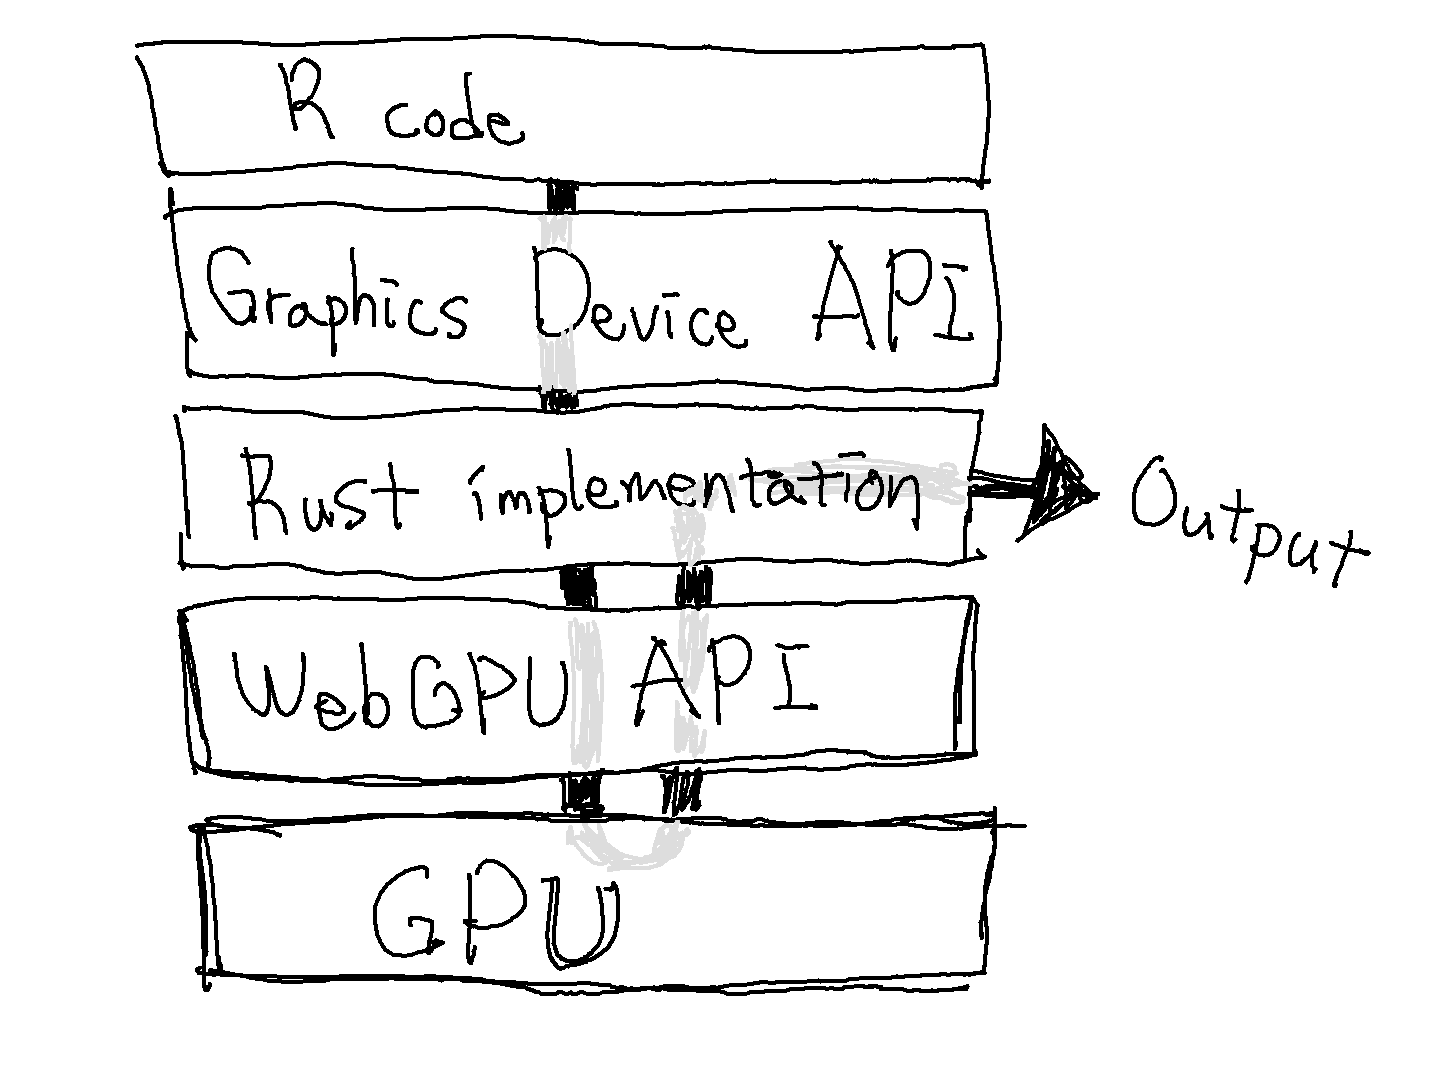 R code
Graphics Device API
Rust implementation
Output
WebGPU API
GPU